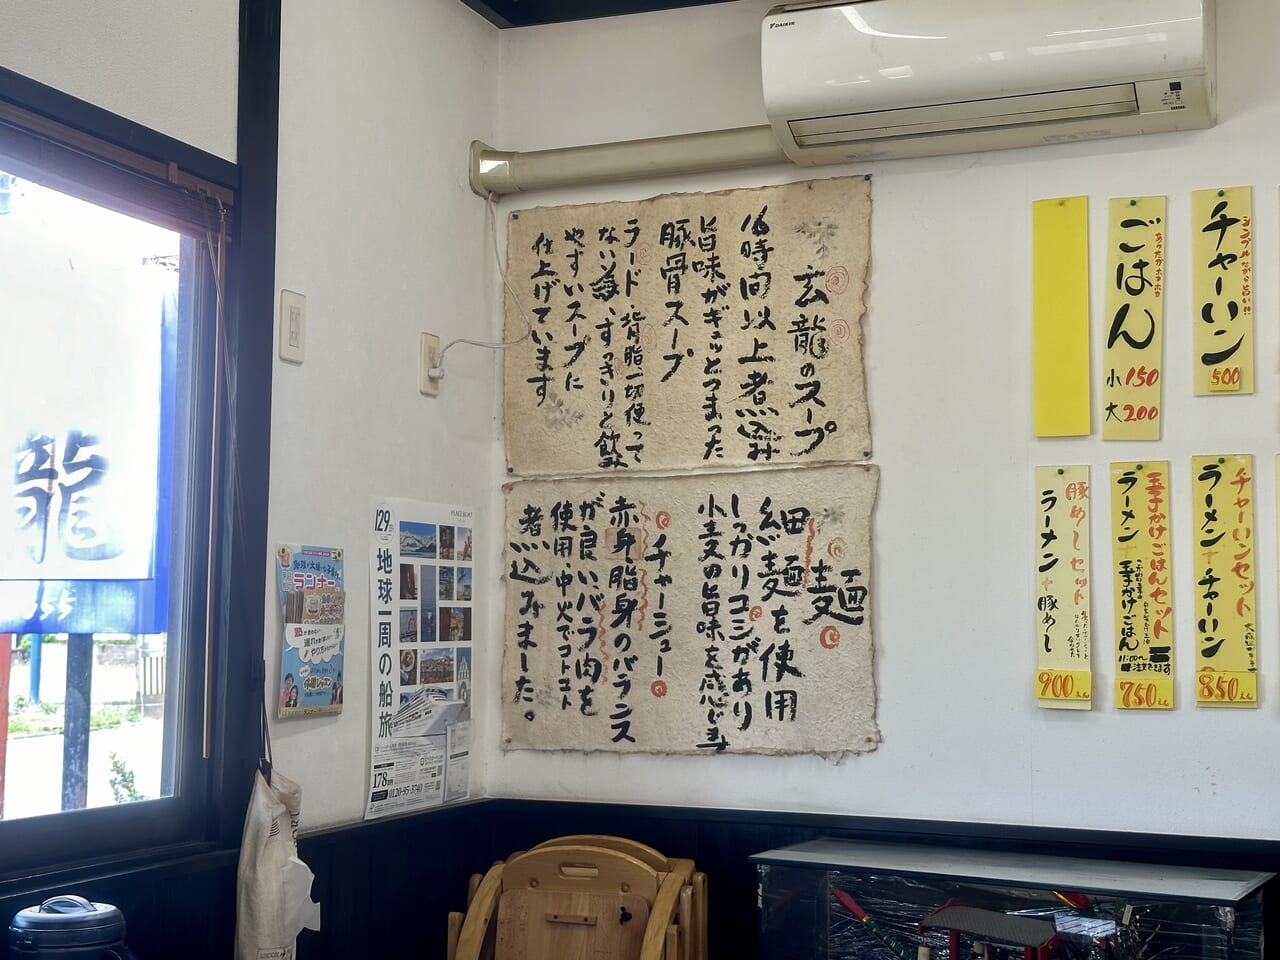 DAIKIN
玄龍のスープ
16時間以上煮込み
旨味がギュッとつまった
豚骨スープ
ラード、背脂一切使って
ない為、すっきりと飲み
やすいスープに
仕上げています
麺
細麺を使用
しっかりコシがあり
小麦の旨味を感じます
チャーシュー
赤身脂身のバランス
が良いバラ肉を
使用、中火でコトコト
煮込みました。
チャーハン
シンプルながら旨い!!
500
ごはん
あったかホカホカ
小150
大200
チャーハンセット
ラーメン+チャーハン
850えん
玉子かけごはんセット
ラーメン+玉子かけごはん
750えん
豚めしセット
ラーメン+豚めし
900えん
129
PEACE BOAT
地球一周の船旅
178
0120-95-3740
ランナー
龍